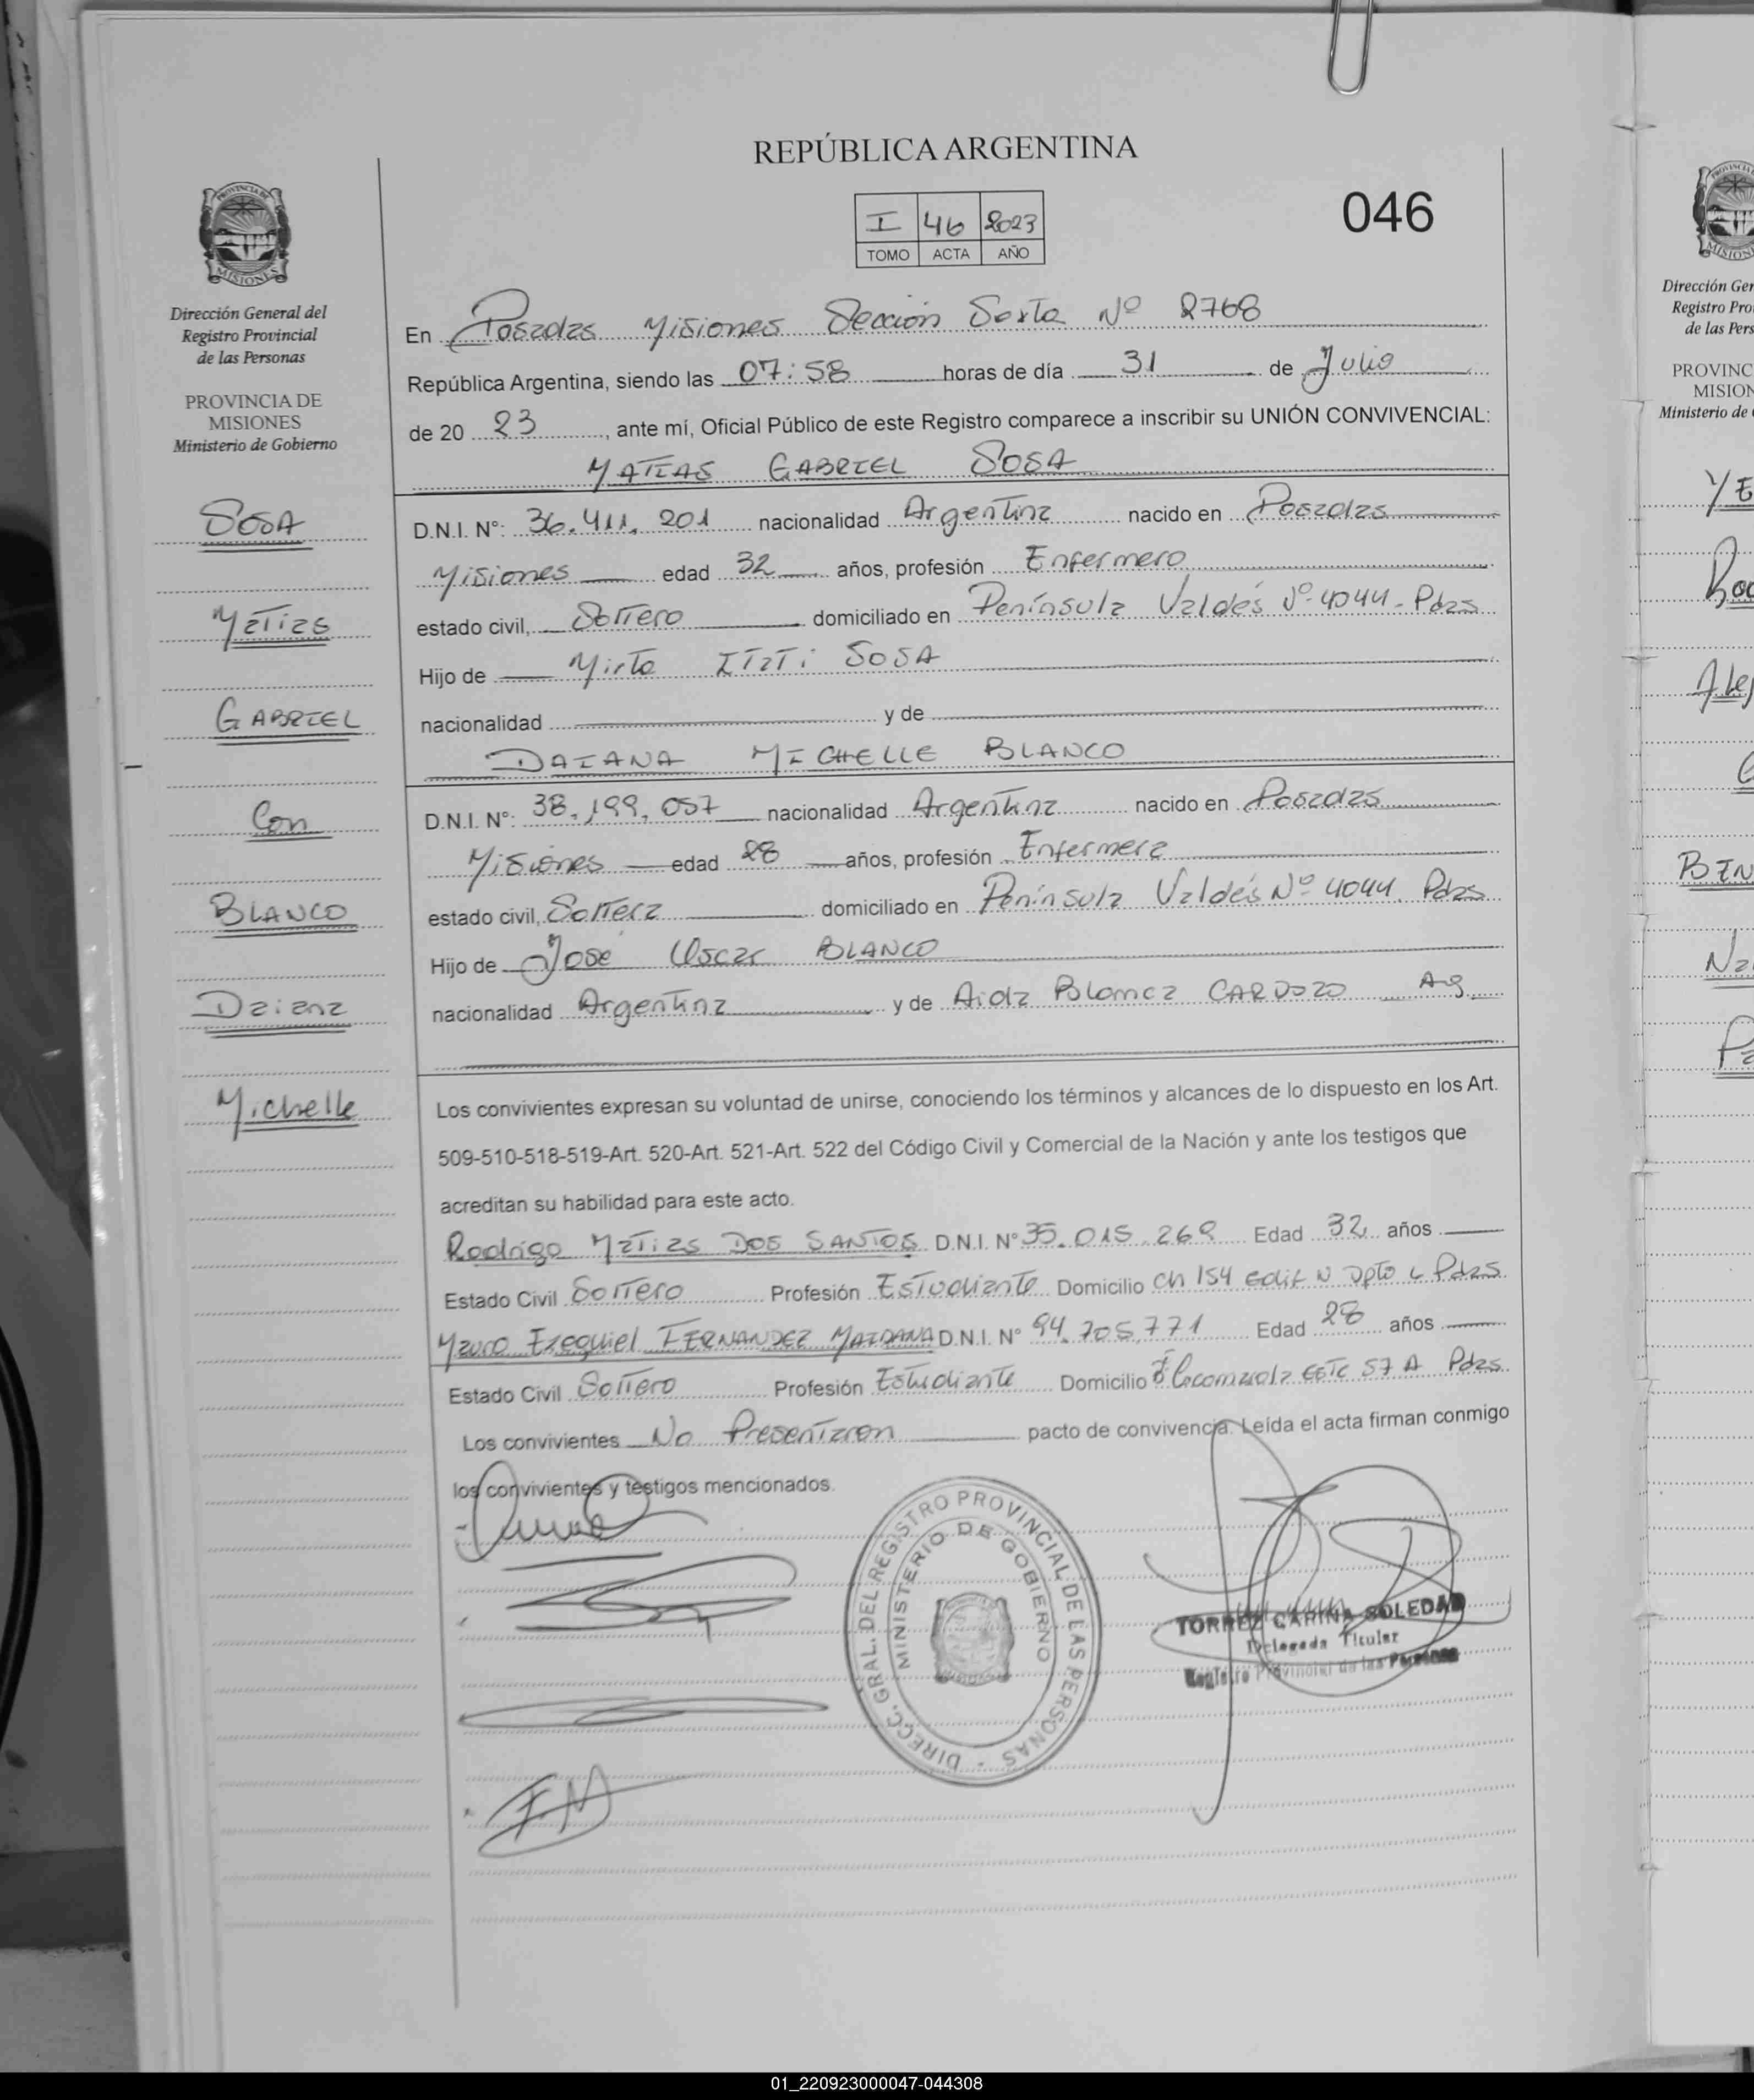 REPÚBLICA ARGENTINA
I 46 2023
TOMO ACTA AÑO
046
Dirección General del
Registro Provincial
de las Personas
PROVINCIA DE
MISIONES
Ministerio de Gobierno
SOSA
Matias
GABRIEL
Con
BLANCO
Daiana
Michelle
En Posadas Misiones Sección Sexta Nº 2768
República Argentina, siendo las 07:58 horas de día 31 de Julio
de 20 23, ante mí, Oficial Público de este Registro comparece a inscribir su UNIÓN CONVIVENCIAL:
MATIAS GABRIEL SOSA
D.N.I. N°: 36.411.201 nacionalidad Argentina nacido en Posadas
Misiones edad 32 años, profesión Enfermero
estado civil, Soltero domiciliado en Península Valdés Nº 4044 - Pdas
Hijo de Mirta Itati SOSA
nacionalidad y de
DAIANA MICHELLE BLANCO
D.N.I. N°: 38.199.057 nacionalidad Argentina nacido en Posadas
Misiones edad 28 años, profesión Enfermera
estado civil, Soltera domiciliado en Península Valdés Nº 4044. Pdas
Hijo de José Oscar BLANCO
nacionalidad Argentina y de Aida Blanca CARDOZO Ag.
Los convivientes expresan su voluntad de unirse, conociendo los términos y alcances de lo dispuesto en los Art.
509-510-518-519-Art. 520-Art. 521-Art. 522 del Código Civil y Comercial de la Nación y ante los testigos que
acreditan su habilidad para este acto.
Rodrigo Matias DOS SANTOS D.N.I. N° 35.015.269 Edad 32 años
Estado Civil Soltero Profesión Estudiante Domicilio Ch 154 Edif N Dpto 4 Pdas
Mauro Ezequiel FERNANDEZ MAIDANA D.N.I. N° 94.705.771 Edad 28 años
Estado Civil Soltero Profesión Estudiante Domicilio 57 A Pdas.
Los convivientes No Presentaron pacto de convivencia. Leída el acta firman conmigo
los convivientes y testigos mencionados.
DIRECC. GRAL. DEL REGISTRO PROVINCIAL DE LAS PERSONAS
MINISTERIO DE GOBIERNO
TORREZ CARINA SOLEDAD
Delegada Titular
Registro Provincial de las Personas
F.M
01_220923000047-044308